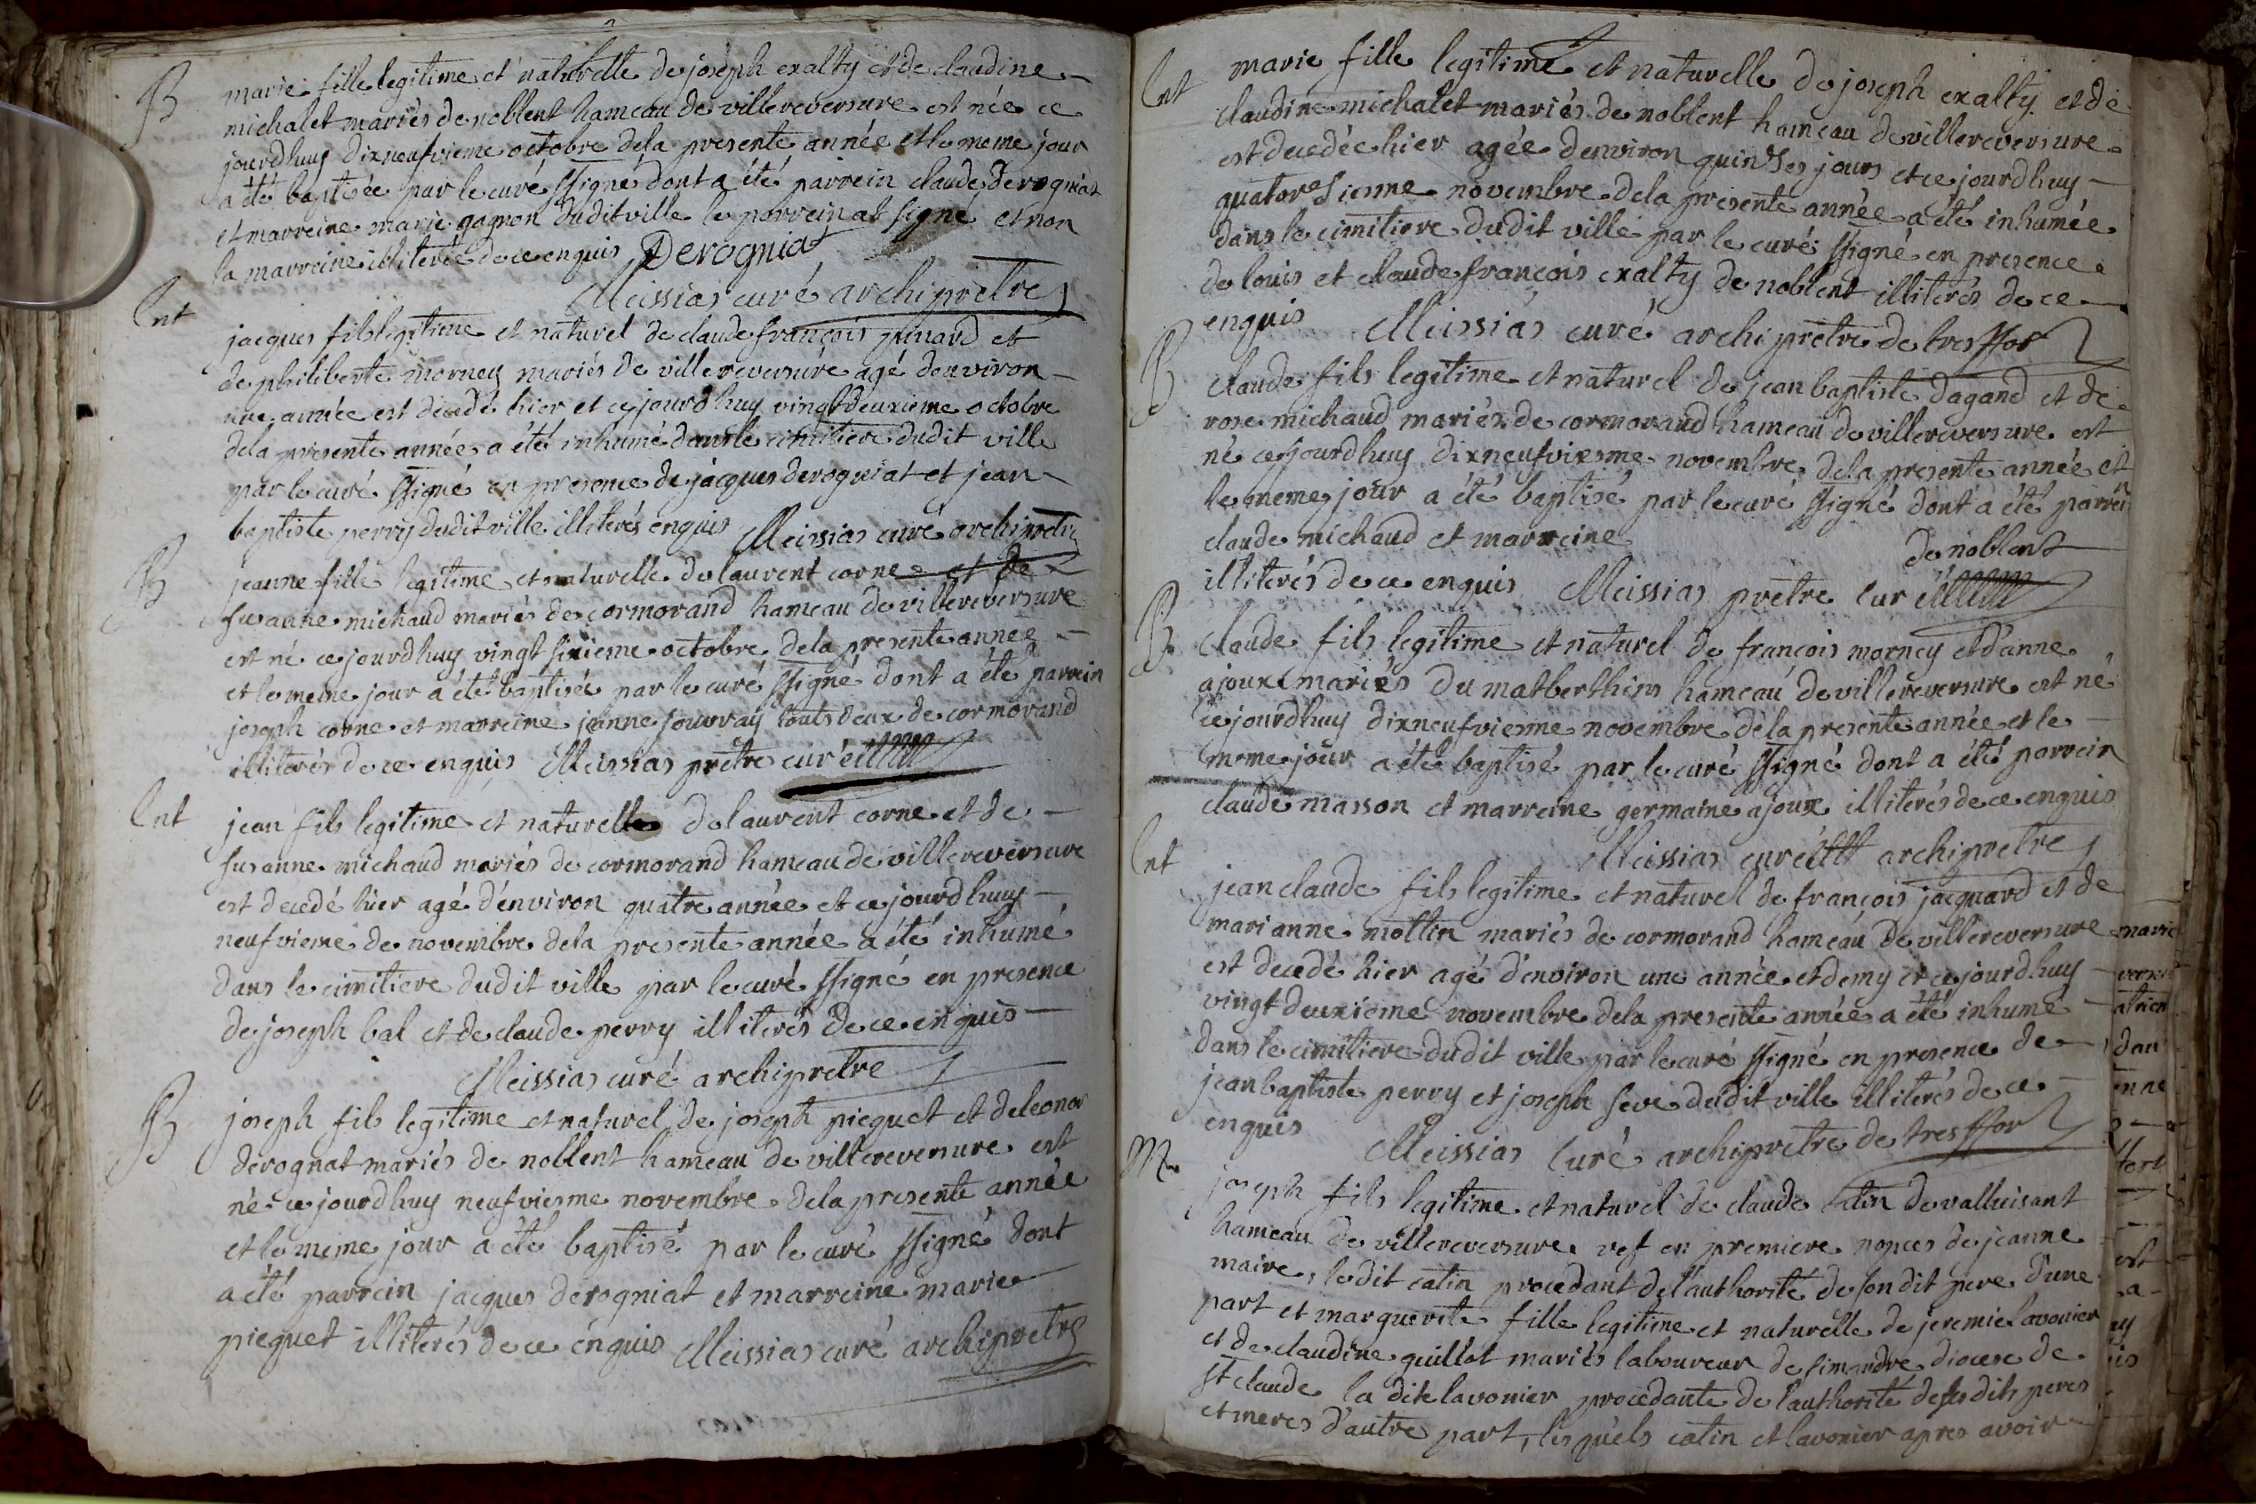 B
marie fille legitime et naturelle de joseph exalty et de claudine
michalet mariés de noblent hameau de villereversure est née ce
jourdhuy dixneufvieme octobre dela presente année et le meme jour
a été baptisée par le curé ssigné dont a été parrein claude Derogniat
et marreine marie gagnon dudit ville le parrein at signé et non
la marreine illiterée de ce enquis Derogniat
Meissias curé archipretre
Ent
jacques fils legitime et naturel de claude françois junard et
de philiberte morney mariés de villereversure agé denviron
une année est decedé hier et cejourdhuy vingt deuxieme octobre
dela presente année a été inhumé dans le cimitiere dudit ville
par le curé ssigné en presence de jacques derogniat et jean
baptiste perry dudit ville illiterés enquis Meissias curé archipretre
B
jeanne fille legitime et naturelle de laurent corne et de
susanne michaud mariés de cormorand hameau de villereversure
est né cejourdhuy vingt sixieme octobre dela presente année
et le meme jour a été baptisée par le curé ssigné dont a été parrein
joseph corne et marreine jeanne jouvray touts deux de cormorand
illiterés de ce enquis Meissias prêtre curé
Ent
jean fils legitime et naturelle de laurent corne et de
susanne michaud mariés de cormorand hameau de villereversure
est decedé hier agé d'environ quatre année et cejourdhuy
neufvieme de novembre dela presente année a été inhumé
dans le cimitiere dudit ville par le curé ssigné en presence
de joseph bal et de claude perry illiterés de ce enquis
Meissias curé archipretre
B
joseph fils legitime et naturel de joseph piequet et deleonor
derognat mariés de noblent hameau de villereversure est
né cejourdhuy neufviesme novembre dela presente année
et le meme jour a été baptisé par le curé ssigné dont
a été parrein jacques derogniat et marreine marie
piequet illiterés de ce enquis Meissias curé archipretre
Ent
marie fille legitime et naturelle de joseph exalty et de
claudine michalet mariés de noblent hameau de villereversure
est decedée hier agée denviron quinses jours et ce jourdhuy
quatorsieme novembre dela presente année a été inhumée
dans le cimitiere dudit ville par le curé ssigné en presence
de louis et claude françois exalty de noblent illiterés de ce
enquis Meissias curé archiprêtre de tresffor
B
claude fils legitime et naturel de jean baptiste dagand et de
rose michaud mariés de cormorand hameau de villereversure est
né cejourdhuy dixneufviesme novembre dela presente année et
le meme jour a été baptisé par le curé ssigné dont a été parrein
claude michaud et marreine
de noblent
illiterés de ce enquis Meissias prêtre curé
B
claude fils legitime et naturel de françois morney et d'anne
ajoux mariés du matberthins hameau de villereversure est né
cejourdhuy dixneufvieme novembre dela presente année et le
meme jour a été baptisé par le curé ssigné dont a été parrein
claude masson et marreine germaine ajoux illiterés de ce enquis
Meissias curé archipretre
Ent
jean claude fils legitime et naturel de françois jacquard et de
marianne mottin mariés de cormorand hameau de villereversure
est decedé hier agé d'environ une année et demy et cejourdhuy
vingt deuxieme novembre dela presente année a été inhumé
dans le cimitiere dudit ville par le curé ssigné en presence de
jean baptiste perry et joseph seve dudit ville illiterés de ce
enquis Meissias curé archipretre de tresffor
M
joseph fils legitime et naturel de claude catin de valluisant
hameau de villereversure vef en premiere nopces de jeanne
maire, ledit catin procedant de l'authorité de sondit pere d'une
part et marguerite fille legitime et naturelle de jeremie lavonier
et de claudine guillot mariés laboureur de simandre diocese de
st claude la dite lavonier procedante de l'authorité desdits peres
et meres d'autre part, lesquels catin et lavonier apres avoir